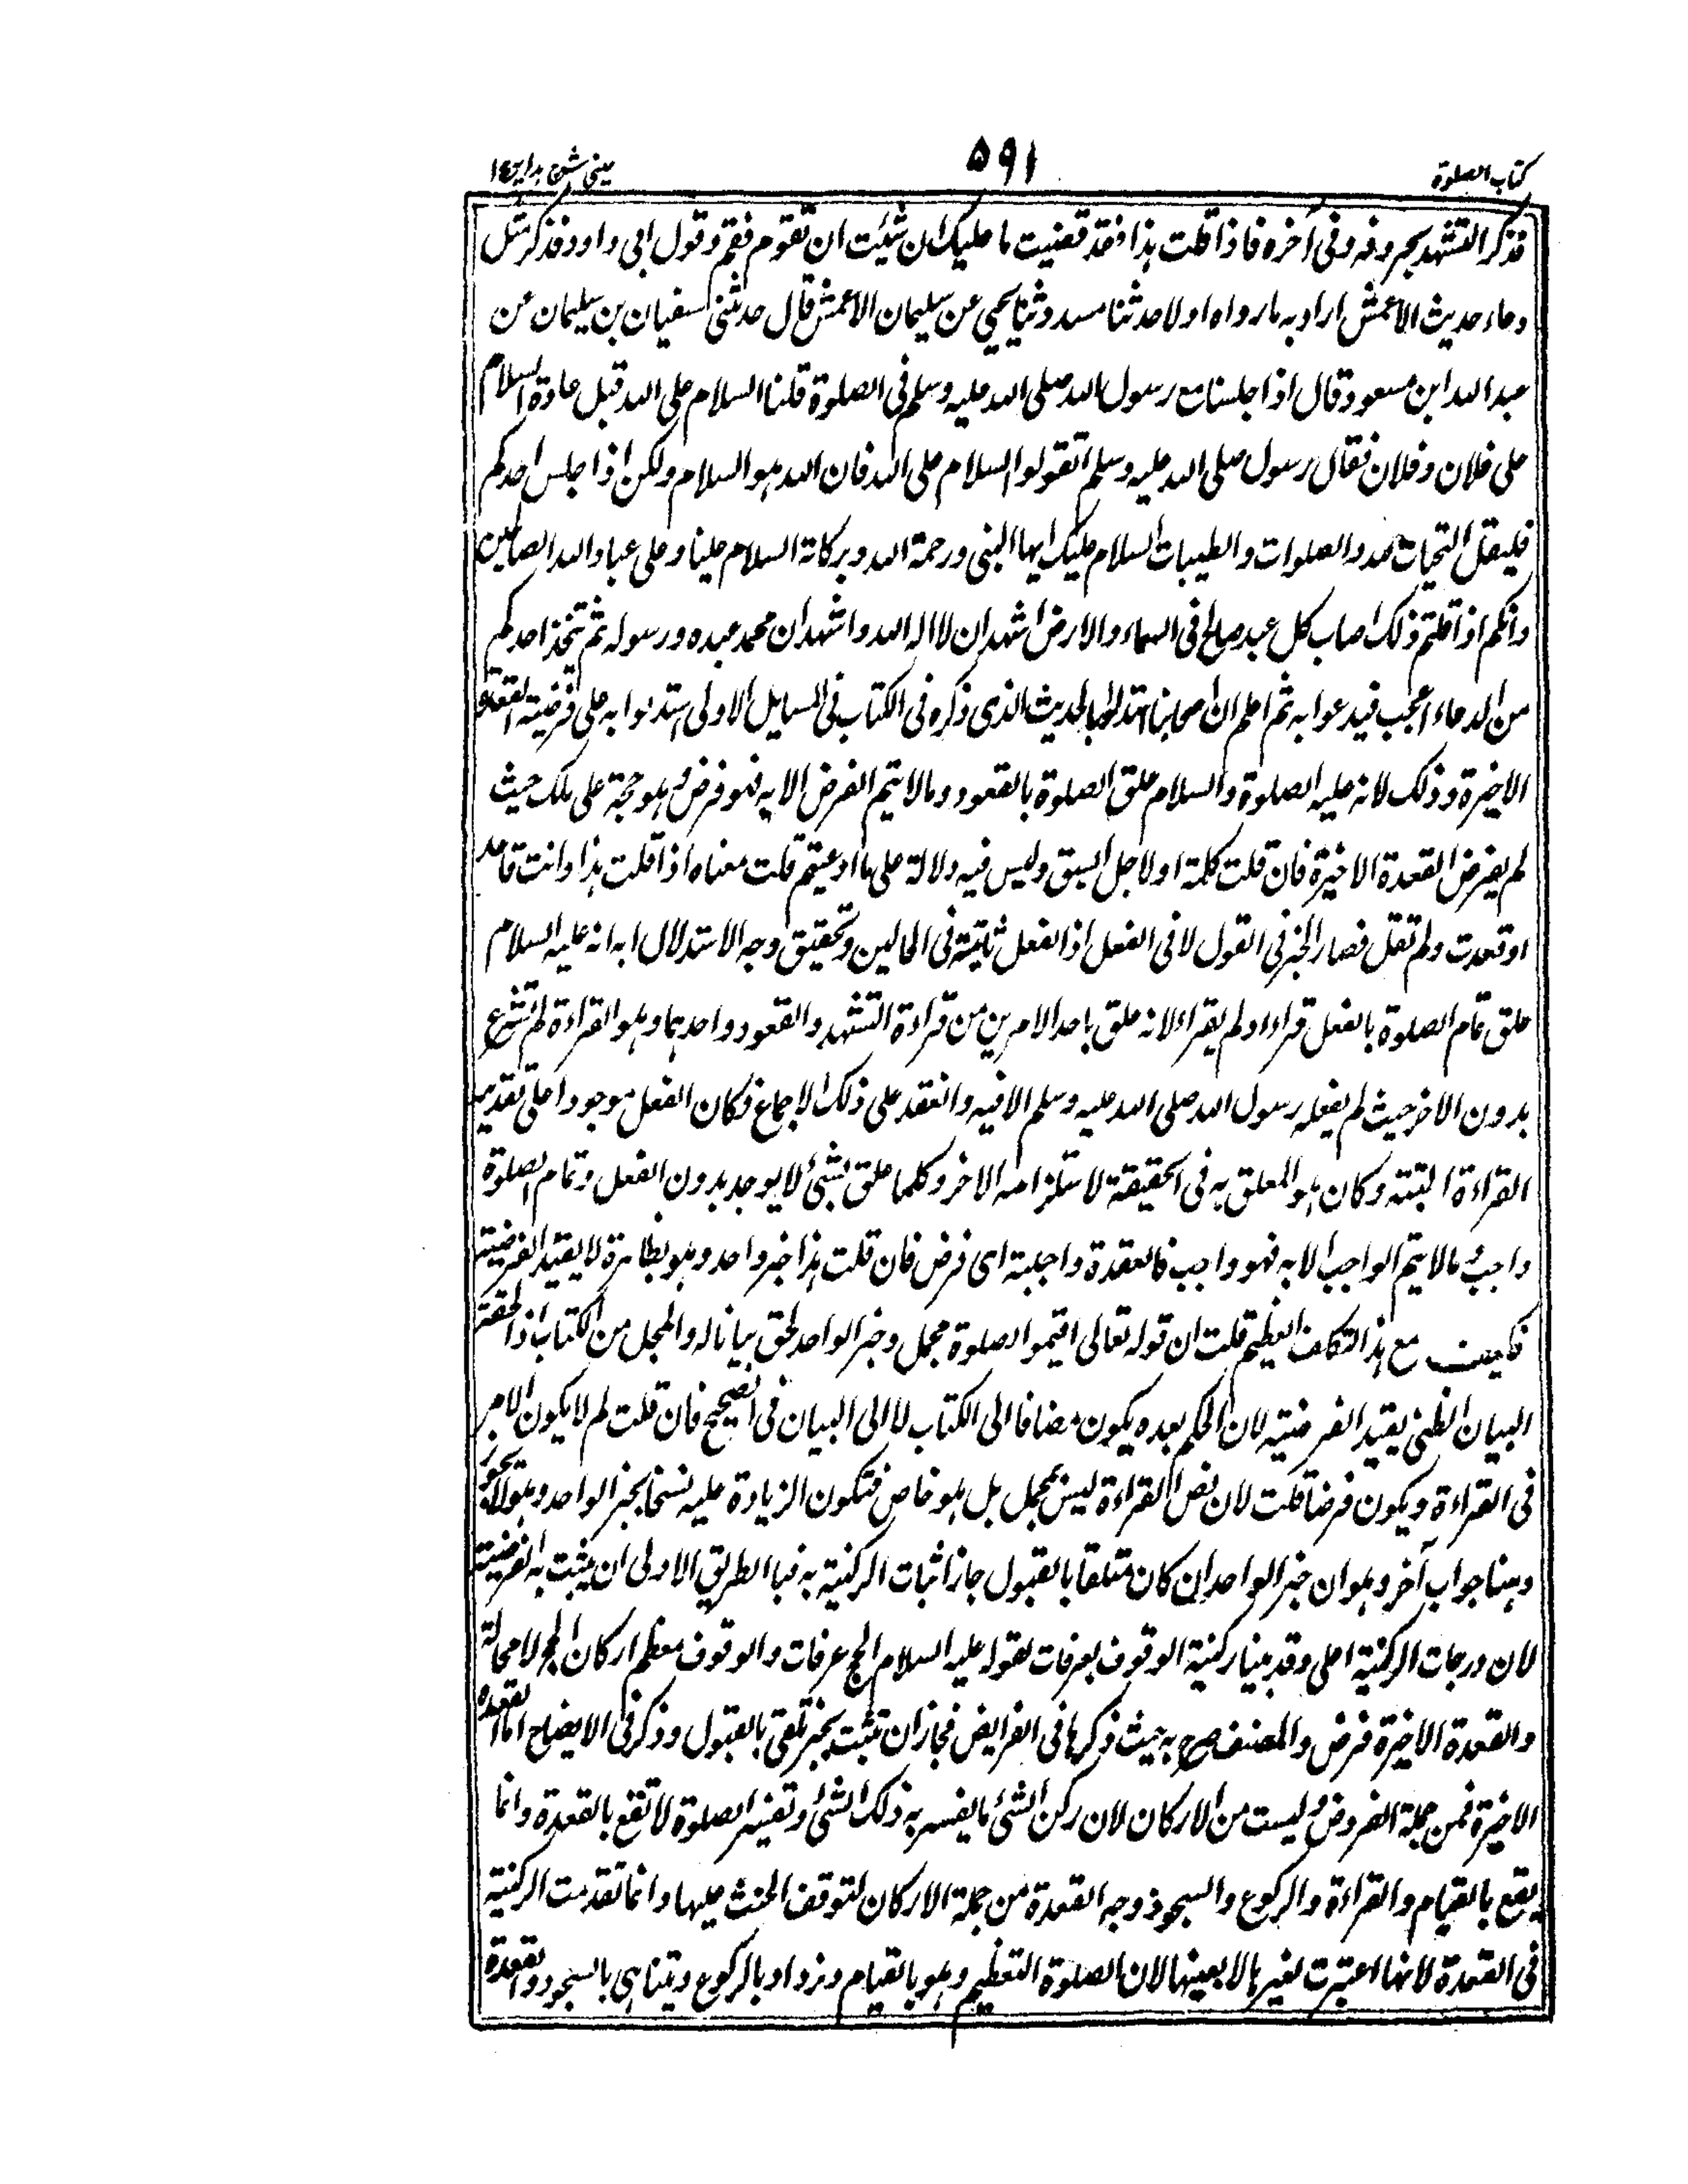 كتاب الصلوة
۵۹۱
عينى شرح هداية ج١
فذكر التشهد بحروفه وفى آخره فاذا قلت هذا فقد قضيت ما عليك ان شئت ان تقوم فقم وقول ابى داود فذكر مثل
دعاء حديث الاعمش اراد به ما رواه اولا حدثنا مسدد ثنا يحيى عن سليمان الاعمش قال حدثنى سفيان بن سليمان عن
عبد الله ابن مسعود قال اذا جلسنا مع رسول الله صلى الله عليه وسلم فى الصلوة قلنا السلام على الله قبل عادة السلام
على فلان وفلان فقال رسول صلى الله عليه وسلم لا تقولوا السلام على الله فان الله هو السلام ولكن اذا جلس احدكم
فليقل التحيات لله والصلوات والطيبات السلام عليك ايها النبى ورحمة الله وبركاته السلام علينا وعلى عباد الله الصالحين
وانكم اذا قلتم ذلك اصاب كل عبد صالح فى السماء والارض اشهد ان لا اله الله واشهد ان محمد عبده ورسوله ثم يتخذ احدكم
من الدعاء اعجب فيدعوا به ثم اعلم ان اصحابنا استدلوا بالحديث الذى ذكره فى الكتاب فى المسايل الاولى استدلوا به على فرضية القعدة
الاخيرة وذلك لانه عليه الصلوة والسلام علق الصلوة بالقعود ومالا يتم الفرض الا به فهو فرض وهو حجة على مالك حيث
لم يفرض القعدة الاخيرة فان قلت كلمة او لاجل السبق وليس فيه دلالة على ما ادعيتم قلت معناه اذا قلت هذا وانت قاعد
او قعدت ولم تقل فصار الخبر فى القول لا فى الفعل اذ الفعل ثابتة فى الحالين وتحقيق وجه الاستدلال ابه انه عليه السلام
علق تمام الصلوة بالفعل قراء او لم يقراء لانه علق باحد الامرين من قراءة التشهد والقعود واحدهما وهو القراءة لم تشرع
بدون الاخر حيث لم يفعله رسول الله صلى الله عليه وسلم الا فيه وانعقد على ذلك الاجماع فكان الفعل موجودا على تقدير
القراءة البتته وكان هو المعلق به فى الحقيقة لاستلزامه الاخر وكلما علق بشئ لا يوجد بدون الفعل وتمام الصلوة
واجب ومالا يتم الواجب الا به فهو واجب فالعقدة واجبة اى فرض فان قلت هذا خبر واحد وهو بظاهره لا يفيد الفرضية
فكيف مع هذا التكلف العظيم قلت ان قوله تعالى اقيموا الصلوة مجمل وخبر الواحد لحق بيانا له والمجمل من الكتاب اذا لحقته
البيان الظنى يفيد الفرضية لان الحكم بعده يكون مضافا الى الكتاب لا الى البيان فى الصحيح فان قلت لم لا يكون الامر
فى القراءة ويكون فرضا قلت لان نص القراءة ليس بمجمل بل هو خاص فتكون الزيادة عليه نسخا بخبر الواحد وهو لا يجوز
وهنا جواب آخر وهو ان خبر الواحد ان كان متلقا بالقبول جاز اثبات الركنية به فبا الطريق الاولى ان يثبت به الفرضية
لان درجات الركنية اعلى وقد بينا ركنية الوقوف بعرفات لقوله عليه السلام الحج عرفات والوقوف معظم اركان الحج لا محالة
والقعدة الاخيرة فرض والمصنف صرح به حيث ذكرها فى الفرايض فجاز ان تثبت بخبر تلقى بالقبول وذكر فى الايضاح اما القعدة
الاخيرة فمن جملة الفروض وليست من الاركان لان ركن الشئ ما يفسر به ذلك الشئ وتفسير الصلوة لا تقع بالقعدة وانما
يقع بالقيام والقراءة والركوع والسجود وجه القعدة من جملة الاركان لتوقف الحنث عليها وانما تقدمت الركنية
فى القعدة لانها اعتبرت لغيرها لا بعينها لان الصلوة التعظيم وهو بالقيام ونزداد بالركوع ويتناهى بالسجود والقعدة